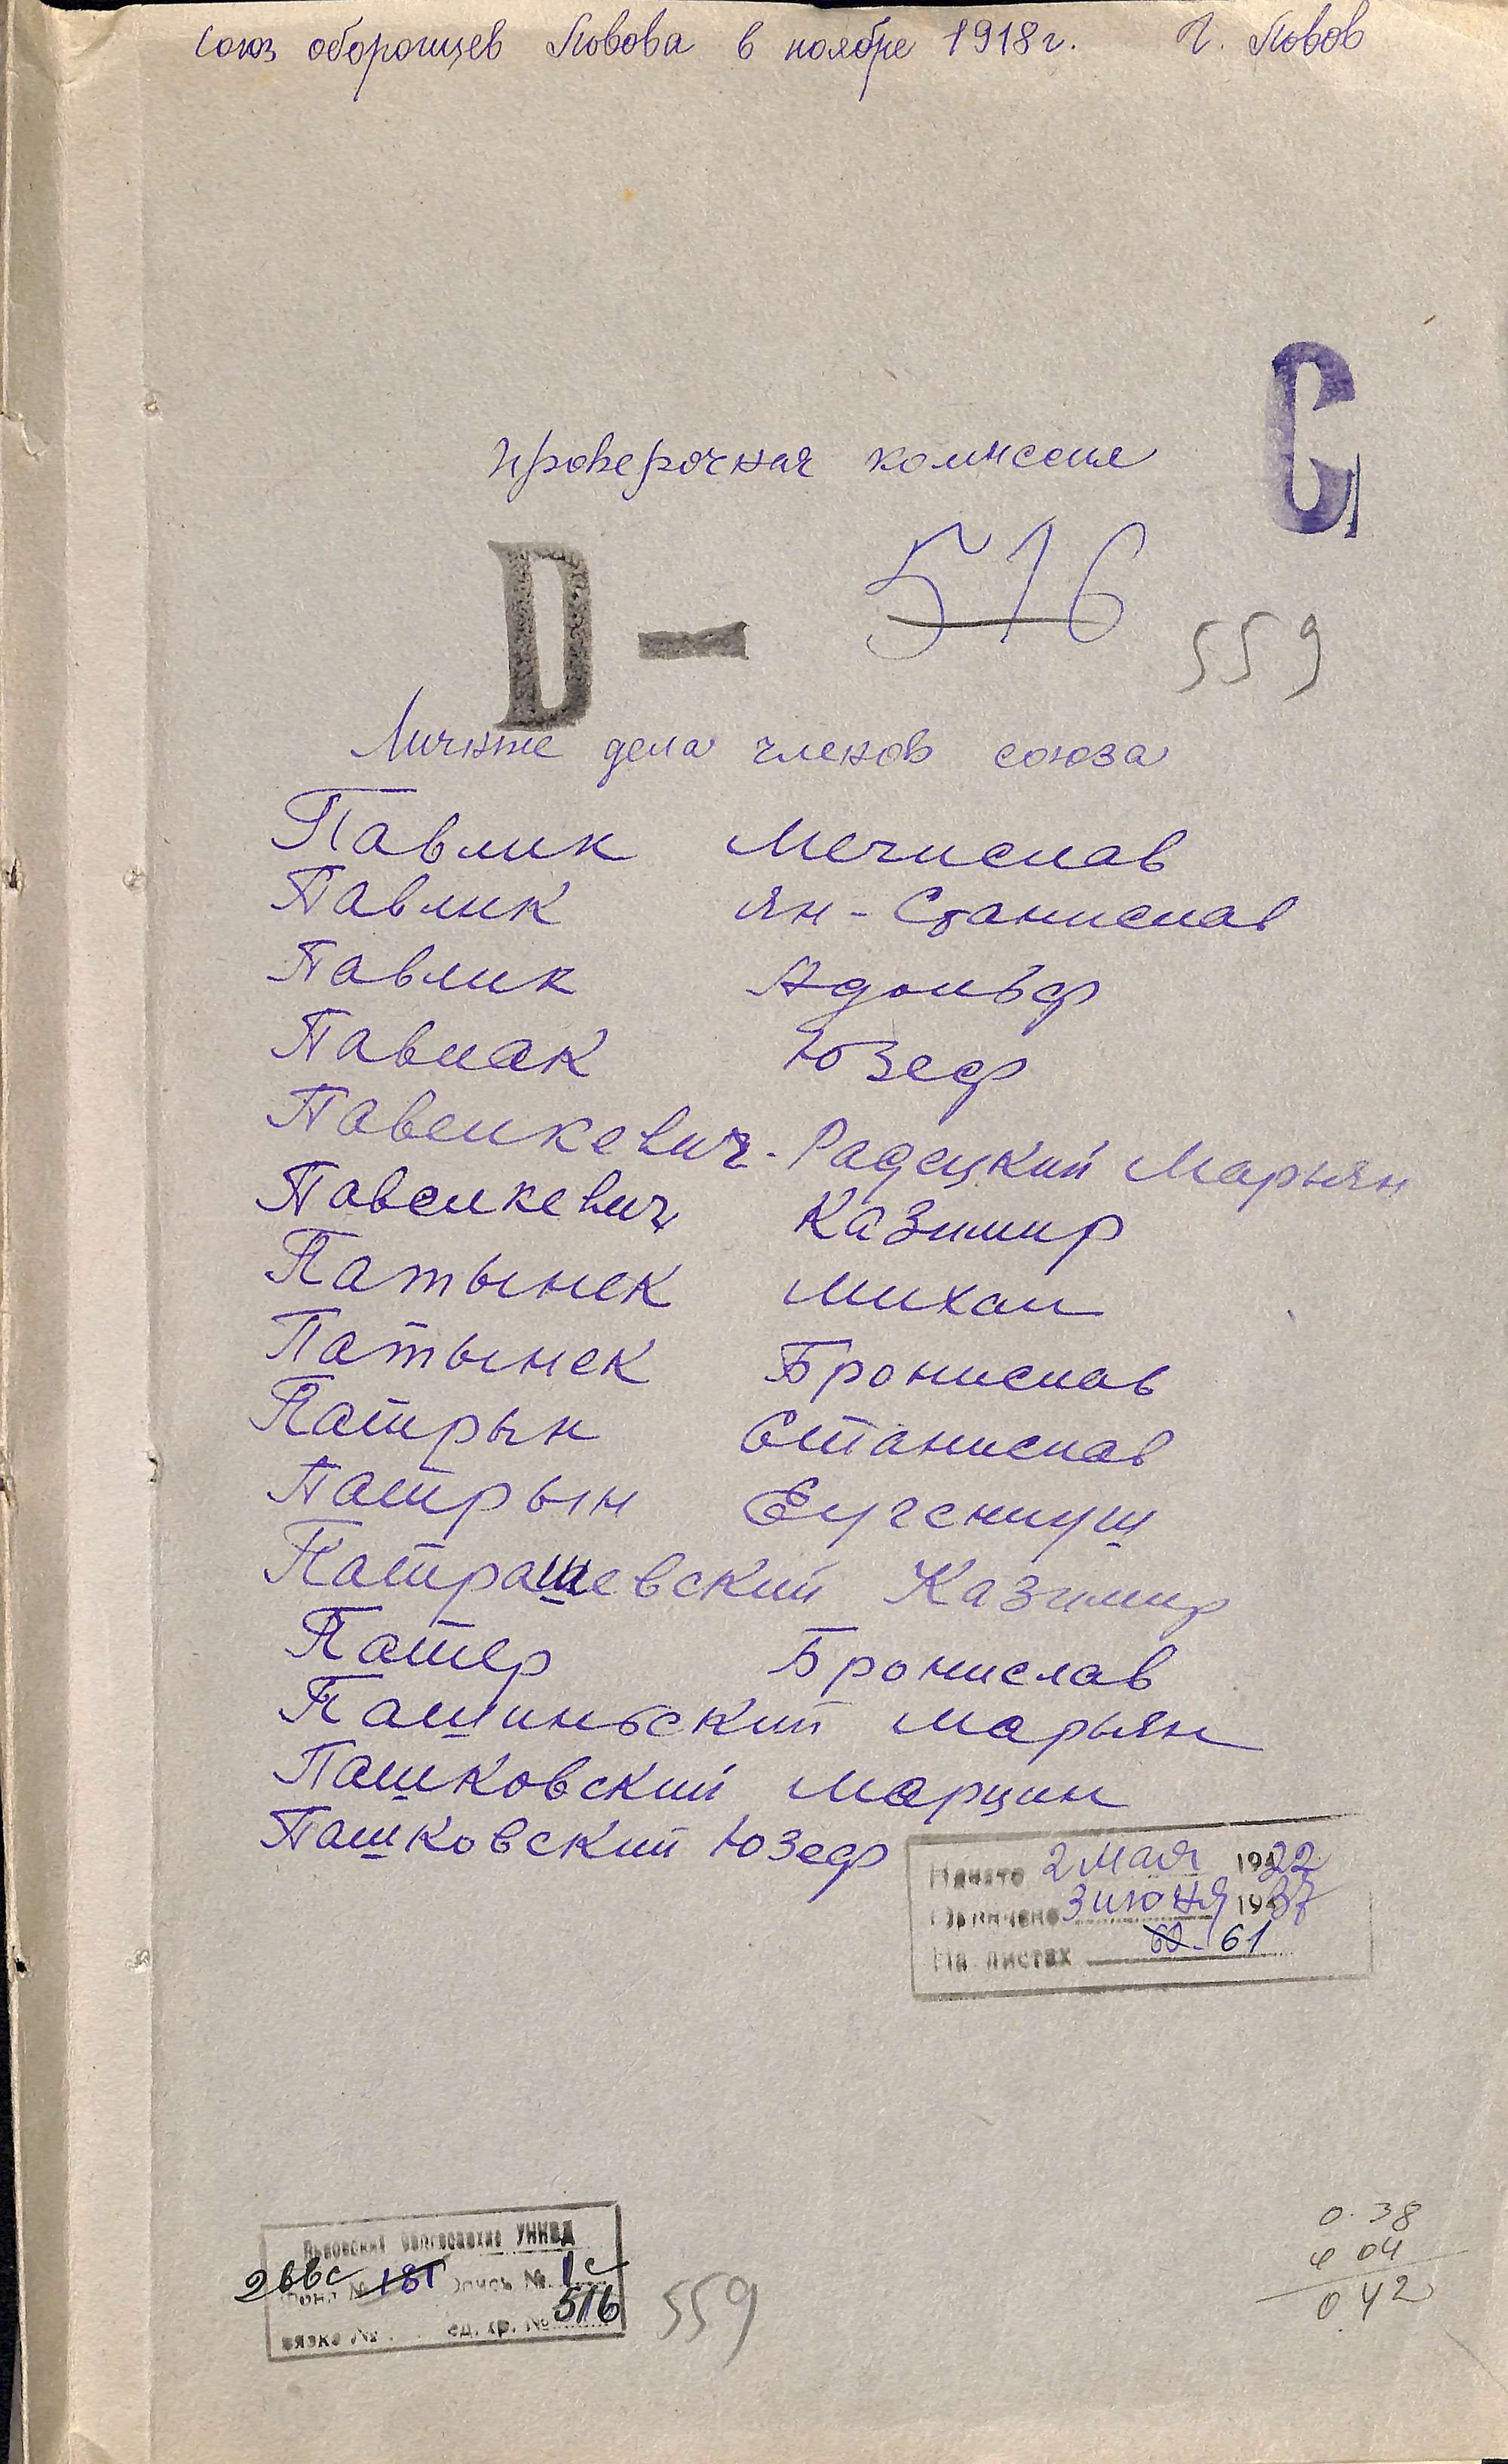 союз оборонцев Львова в ноябре 1918 г. г. Львов
С
проверочная комиссия
D — 516
559
Личные дела членов союза
Павлик Мечислав
Павлик Ян-Станислав
Павлик Адольф
Павлак Юзеф
Павликевич-Радецкий Марьян
Павликевич Казимир
Патынек Михал
Патынек Бронислав
Патрын Станислав
Патрын Еугениуш
Патрашевский Казимир
Патер Бронислав
Пашиньский Марьян
Пашковский Марцин
Пашковский Юзеф
Начато 2 мая 1922
Окончено 3 июня 1937
На листах 60 61
Львовский облгосархив УНКВД
266с Фонд № 181 Опись № 1с
516
вязка № ед. хр. №
559
0.38
4 04
0 42